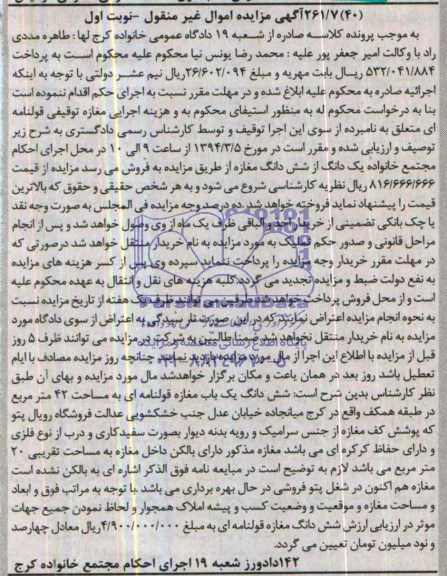 ۲۶۱/۷(۴۰)آگهی مزایده اموال غیر منقول -نوبت اول
به موجب پرونده کلاسه صادره از شعبه ۱۹ دادگاه عمومی خانواده کرج لها : طاهره مددی
راد با وکالت امیر جعفر پور علیه : محمد رضا یونس نیا محکوم علیه محکوم است به پرداخت
۵۳۲/۰۴۱/۸۸۴ ریال بابت مهریه و مبلغ ۲۶/۶۰۲/۰۹۴ ریال نیم عشر دولتی با توجه به اینکه
اجرائیه صادره به محکوم علیه ابلاغ شده و در مهلت مقرر نسبت به اجرای حکم اقدام ننموده است
بنا به درخواست محکوم له به منظور استیفای محکوم به و هزینه اجرایی مغازه توقیفی قولنامه
ای متعلق به نامبرده از سوی این اجرا توقیف و توسط کارشناس رسمی دادگستری به شرح زیر
توصیف و ارزیابی شده و مقرر است در مورخ ۱۳۹۴/۳/۵ از ساعت ۹ الی ۱۰ در محل اجرای احکام
مجتمع خانواده یک دانگ از شش دانگ مغازه از طریق مزایده به فروش می رسد مزایده از قیمت
۸۱۶/۶۶۶/۶۶۶ ریال نظریه کارشناسی شروع می شود و به هر شخص حقیقی و حقوق که بالاترین
قیمت را پیشنهاد نماید فروخته خواهد شد.ده درصد وجه مزایده فی المجلس به صورت وجه نقد
یا چک بانکی تضمینی از خریدار اخذ و الباقی ظرف یک ماه از وی وصول خواهد شد و پس از انجام
مراحل قانونی و صدور حکم تملیک به مورد مزایده به نام خریدار منتقل خواهد شد درصورتی که
در مهلت مقرر خریدار وجه مزایده را پرداخت ننماید سپرده وی پس از کسر هزینه های مزایده
به نفع دولت ضبط و مزایده تجدید می گردد.کلیه هزینه های نقل و انتقال به عهده محکوم علیه
است و از محل فروش پرداخت خواهد شد طرفین می توانند ظرف یک هفته از تاریخ مزایده نسبت
به نحوه انجام مزایده اعتراض نمایند که در این صورت تا رسیدگی به اعتراض از سوی دادگاه مورد
مزایده به نام خریدار منتقل نخواهد شد و طالبین به شرکت در مزایده می توانند ظرف ۵ روز
قبل از مزایده با اطلاع این اجرا از مال مورد مزایده بازدید نمایند چنانچه روز مزایده مصادف با ایام
تعطیل باشد روز بعد در همان یاعت و مکان برگزار خواهدشد مال مورد مزایده و بهای آن طبق
نظر کارشناس بدین شرح است: شش دانگ یک باب مغازه قولنامه ای به مساحت ۴۲ متر مربع
در طبقه همکف واقع در کرج میانجاده خیابان عدل جنب خشکشویی عدالت فروشگاه رویال پتو
که پوشش کف مغازه از جنس سرامیک و رویه بدنه دیوار بصورت سفیدکاری و درب از نوع فلزی
و دارای حفاظ کرکره ای می باشد مغازه مذکور دارای بالکن داخل مغازه به مساحت تقریبی ۲۰
متر مربع می باشد لازم به توضیح است در مبایعه نامه فوق الذکر اشاره ای به بالکن نشده است
مغازه هم اکنون در شغل پتو فروشی در حال بهره برداری می باشد .با توجه به مراتب فوق و ابعاد
و مساحت مغازه و موقعیت و وضعیت کسب و پیشه املاک همجوار و لحاظ نمودن جمیع جهات
موثر در ارزیابی ارزش شش دانگ مغازه قولنامه ای به مبلغ ۴/۹۰۰/۰۰۰/۰۰۰ریال معادل چهارصد
و نود میلیون تومان تعیین می گردد.
۱۴۲دادورز شعبه ۱۹ اجرای احکام مجتمع خانواده کرج